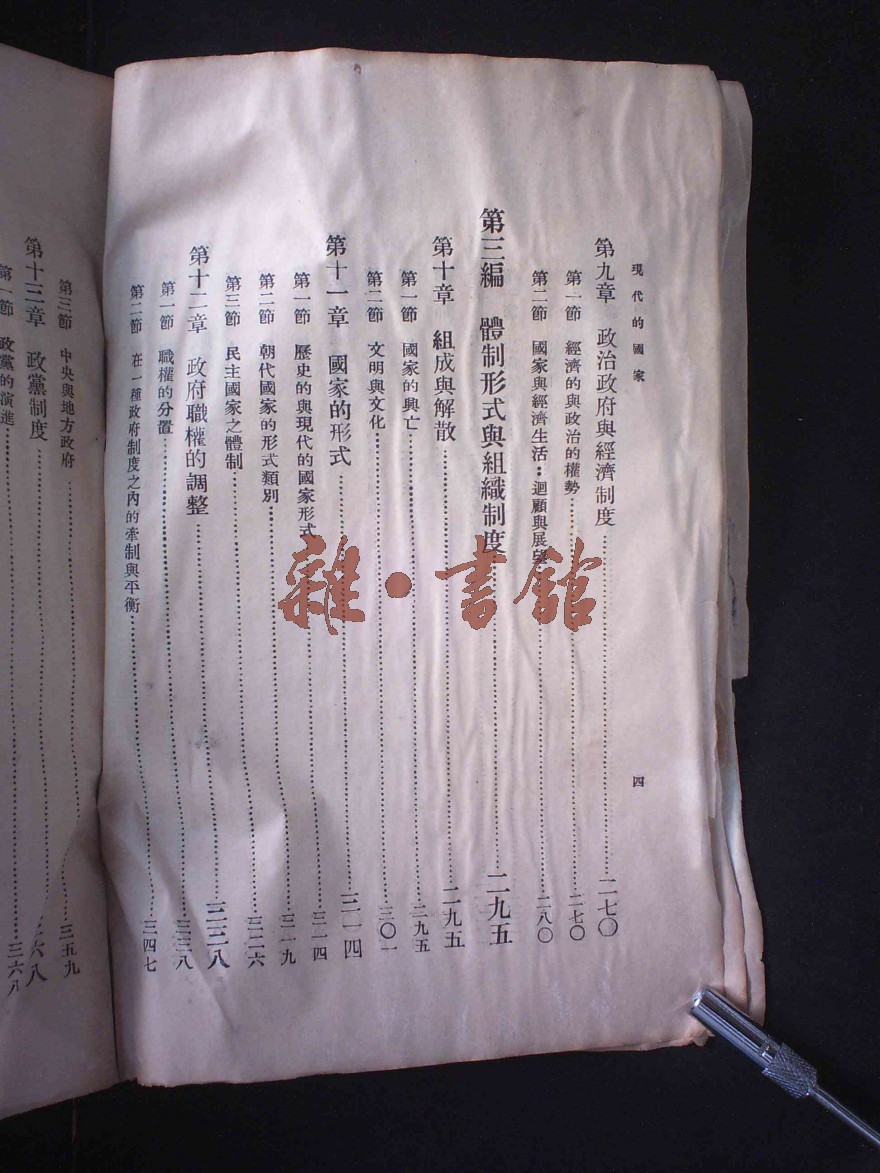 現代的國家
四
第九章　政治政府與經濟制度……二七〇
第一節　經濟的與政治的權勢……二七〇
第二節　國家與經濟生活：迴顧與展望……二八〇
第三編　體制形式與組織制度……二九五
第十章　組成與解散……二九五
第一節　國家的興亡……二九五
第二節　文明與文化……三〇一
第十一章　國家的形式……三一四
第一節　歷史的與現代的國家形式……三一四
第二節　朝代國家的形式類別……三一九
第三節　民主國家之體制……三二六
第十二章　政府職權的調整……三三八
第一節　職權的分置……三三八
第二節　在一種政府制度之內的牽制與平衡……三四七
第三節　中央與地方政府……三五九
第十三章　政黨制度……三六八
第一節　政黨的演進……三六八
雜·書館